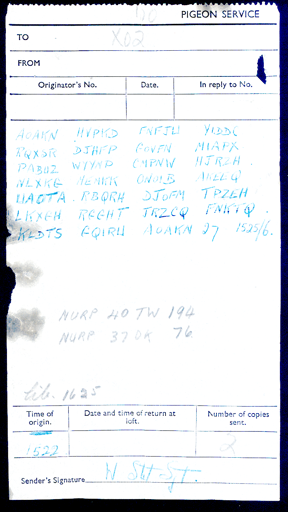 PIGEON SERVICE
TO X02
FROM
Originator's No. Date. In reply to No.
AOAKN HVPKD FNFJU YIDDC
RQXSR DJHFP GOVFN MIAPX
PABUZ WYYNP CMPNW HJRZH
NLXKG MEMKK ONOIB AKEEQ
UAOTA RBQRH DJOFM TPZEH
LKXGH RGGHT JRZCQ FNKTQ
KLDTS GQIRU AOAKN 27 1525/6.
NURP 40 TW 194
NURP 37 DK 76
lib. 1625
Time of origin. Date and time of return at loft. Number of copies sent.
1522 2
Sender's Signature Sjt.